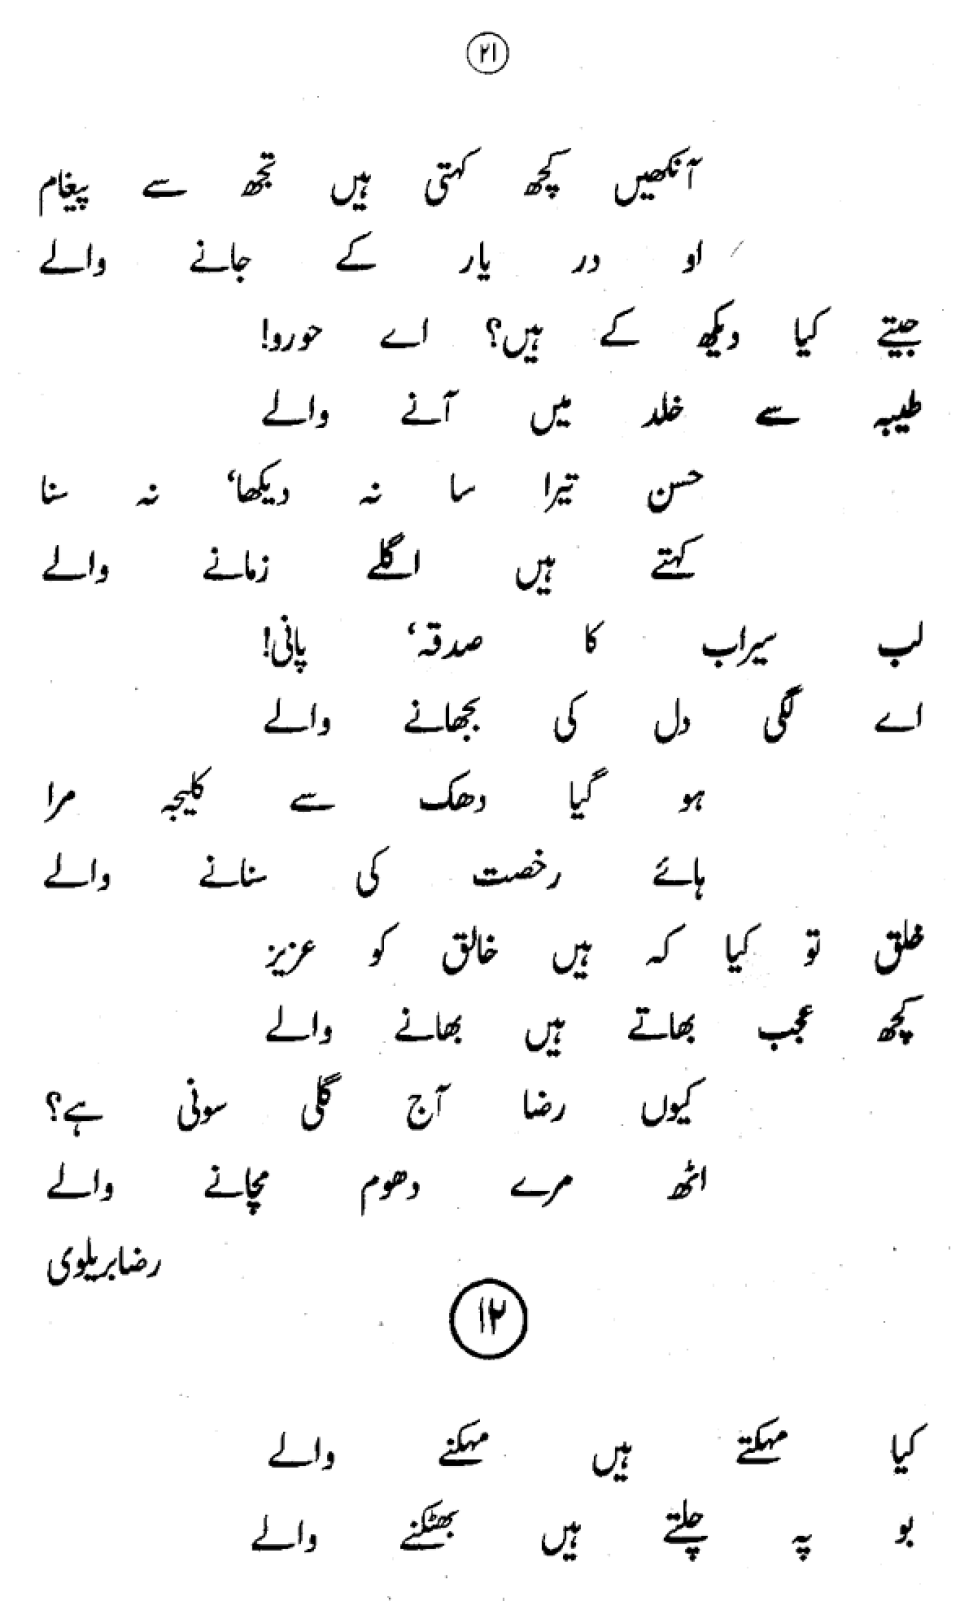 ۲۱
آنکھیں کچھ کہتی ہیں تجھ سے پیغام
او در یار کے جانے والے
جیتے کیا دیکھ کے ہیں؟ اے حورو!
طیبہ سے خلد میں آنے والے
حسن تیرا سا نہ دیکھا، نہ سنا
کہتے ہیں اگلے زمانے والے
لب سیراب کا صدقہ، پانی!
اے لگی دل کی بجھانے والے
ہو گیا دھک سے کلیجہ مرا
ہائے رخصت کی سنانے والے
خلق تو کیا کہ ہیں خالق کو عزیز
کچھ عجب بھاتے ہیں بھانے والے
کیوں رضا آج گلی سونی ہے؟
اٹھ مرے دھوم مچانے والے
رضا بریلوی
۱۲
کیا مہکتے ہیں مہکنے والے
بو پہ چلتے ہیں بھٹکنے والے